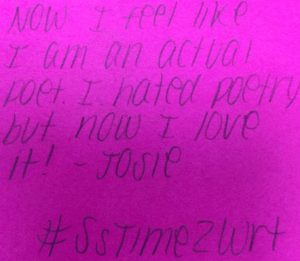 NOW I feel like
I am an actual
poet. I hated poetry
but now I love
it! - Josie
#SsTime2Wrt